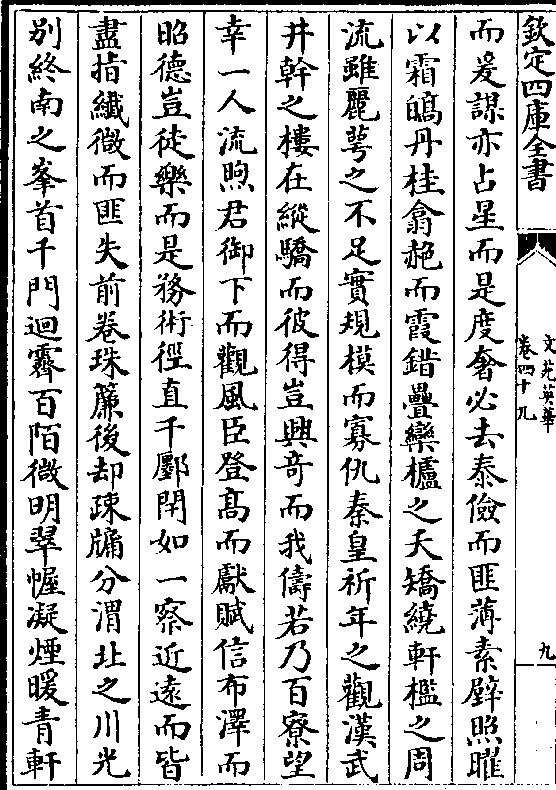 欽定四庫全書
文苑英華
卷四十九
九
而爰謀亦占星而是度奢必去泰儉而匪薄素壁照曜
以霜皜丹桂翕赩而霞錯疊欒櫨之夭矯繞軒檻之周
流雖麗萼之不足實規模而寡仇秦皇祈年之觀漢武
井幹之樓在縱驕而彼得豈興竒而我儔若乃百寮望
幸一人流煦君御下而觀風臣登髙而獻賦信布澤而
昭德豈徒樂而是務術徑直千酈閈如一察近遠而皆
盡指纎微而匪失前卷珠簾後却疎牗分渭北之川光
别終南之峯首千門迴霽百陌微明翠幄凝煙暖青軒